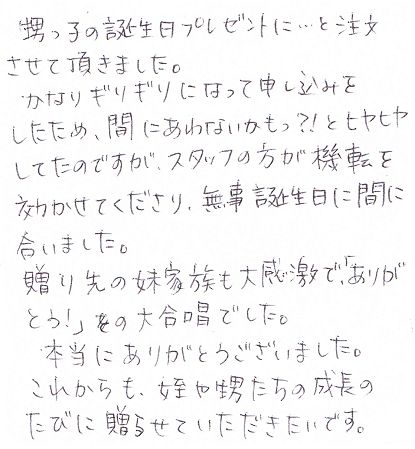 甥っ子の誕生日プレゼントに…と注文
させて頂きました。
かなりギリギリになって申し込みを
したため、間にあわないかもっ?!とヒヤヒヤ
してたのですが、スタッフの方が機転を
効かせてくださり、無事誕生日に間に
合いました。
贈り先の妹家族も大感激で、「ありが
とう!」の大合唱でした。
本当にありがとうございました。
これからも、姪や甥たちの成長の
たびに贈らせていただきたいです。